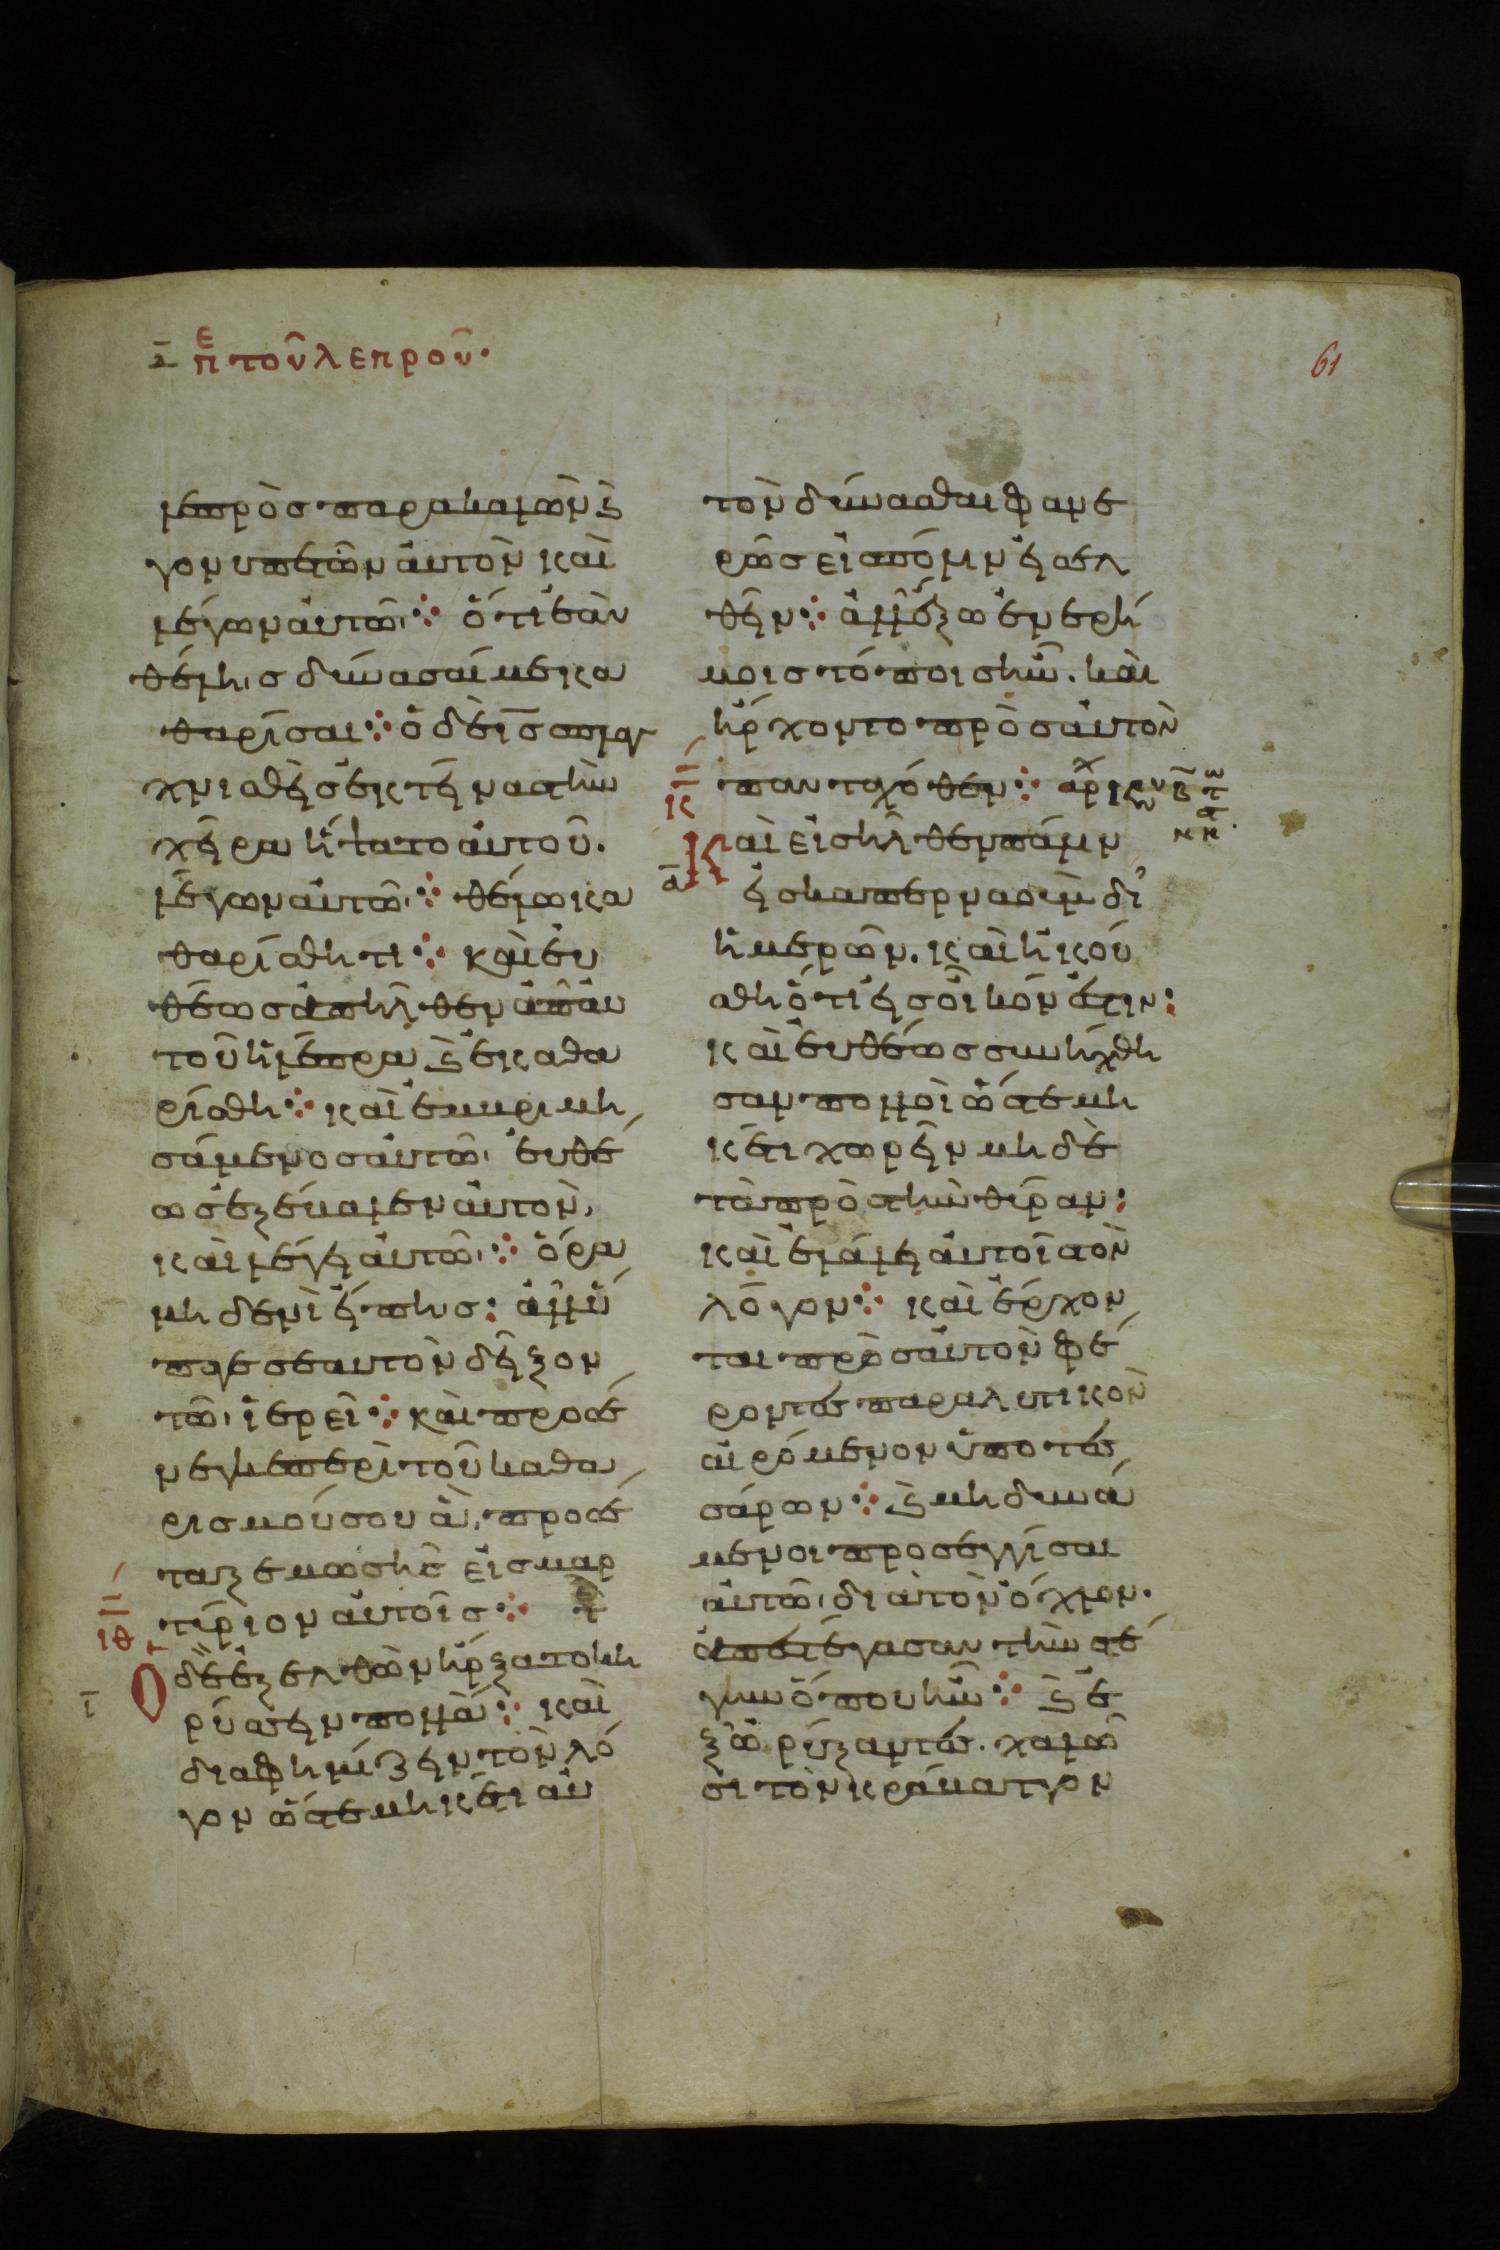 ς̄ πε τοῦ λεπροῦ·
61
λεπρὸσ παρακαλῶν ϗ
γονυπετῶν ἀυτὸν καὶ
λέγων ἀυτῶ· ὅτι ἐὰν
θέλησ δύνασαί με κα
θαρίσαι ὁ δὲ ισ σπλα
χνισθεὶς ἐκτείνασ τὴν
χεῖρα ἥψατο ἀυτοῦ.
λέγων ἀυτῶ· θέλω κα
θαρίσθητι καὶ ἐυ
θέωσ ἀπῆλθεν ἀπ ἀυ
τοῦ ἡ λέπρα ϗ ἐκαθα
ρίσθη καὶ ἐμβριμη
σάμενοσ ἀυτῶ· ἐυθέ
ωσ ἐξέβαλεν ἀυτὸν,
καὶ λέγει ἀυτῶ· ὅρα
μηδενὶ εἴπησ: ἀλλ' ὕ
παγε σεαυτὸν δεῖξον
τῶ ἱερεῖ καὶ προσέ
νεγκε περὶ τοῦ καθα
ρισμού σου ἃ προσέ
ταξε μωσῆσ εἰσ μαρ
τύριον ἀυτοῖσ τε
ιθ
ι
Ο δὲ ἐξελθὼν ἤρξατο κη
ρύσσειν πολλὰ καὶ
διαφημίζειν τὸν λό
γον ὥστε μηκέτι ἀυ
τὸν δύνασθαι φανε
ρῶσ εἰσ πόλιν εἰσελ
θεῖν ἀλλ' ἔξω ἐν ἐρή
μοισ τόποισ ἦν. καὶ
ἤρχοντο πρὸσ ἀυτὸν
πανταχόθεν
ικ
α
Καὶ εἰσῆλθεν πάλιν
εἰσ καπερναοὺμ δι'
ἡμερῶν. καὶ ἠκού
σθη ὅτι εἰσ οἶκόν ἐστιν:
καὶ ἐυθέωσ συνήχθη
σαν πολλοὶ ὥστε μη
κέτι χωρεῖν μηδὲ
τὰ πρὸσ τὴν θύραν:
καὶ ἐλάλει ἀυτοῖσ τὸν
λόγον καὶ ἔρχον
ται πρὸσ ἀυτὸν φέ
ροντεσ παραλυτικὸν
αἰρόμενον ὑπὸ τεσ
σάρων ϗ μὴ δυνά
μενοι προσεγγίσαι
ἀυτῶ διὰ τὸν ὄχλον.
ἀπεστέγασαν τὴν στέ
γην ὅπου ἦν ϗ ἐ
ξορύξαντεσ. χαλῶ
σι τὸν κράβαττον